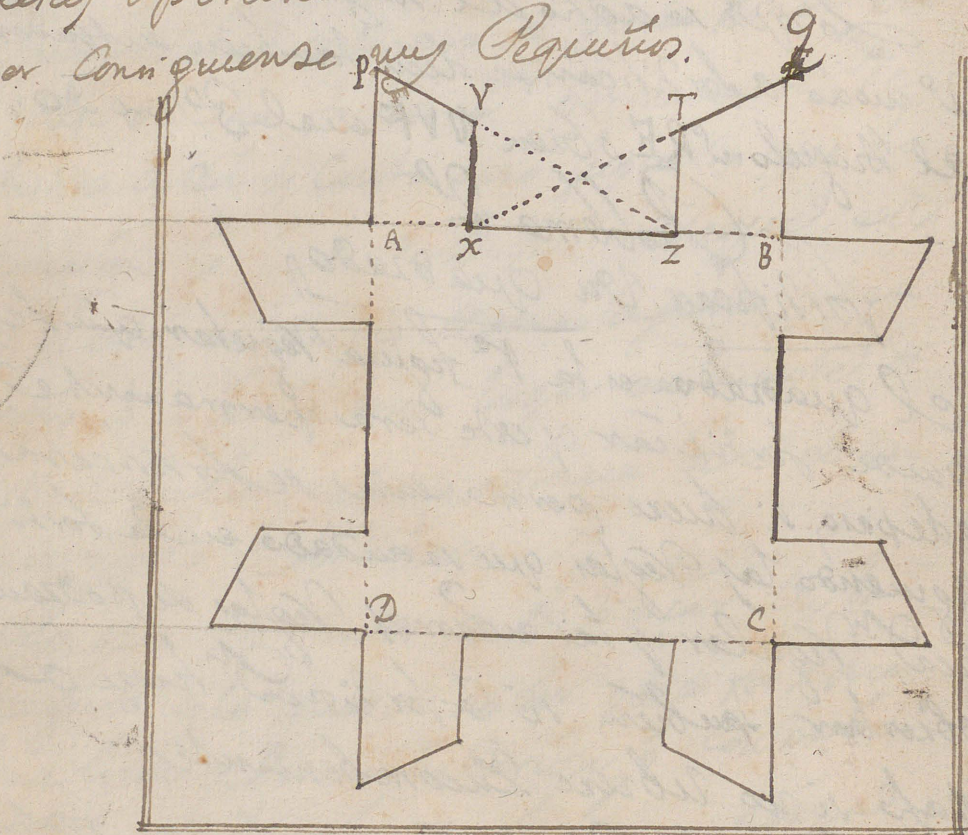 er Consiguiense muy Pequeños.
P V T q
A X Z B
D C